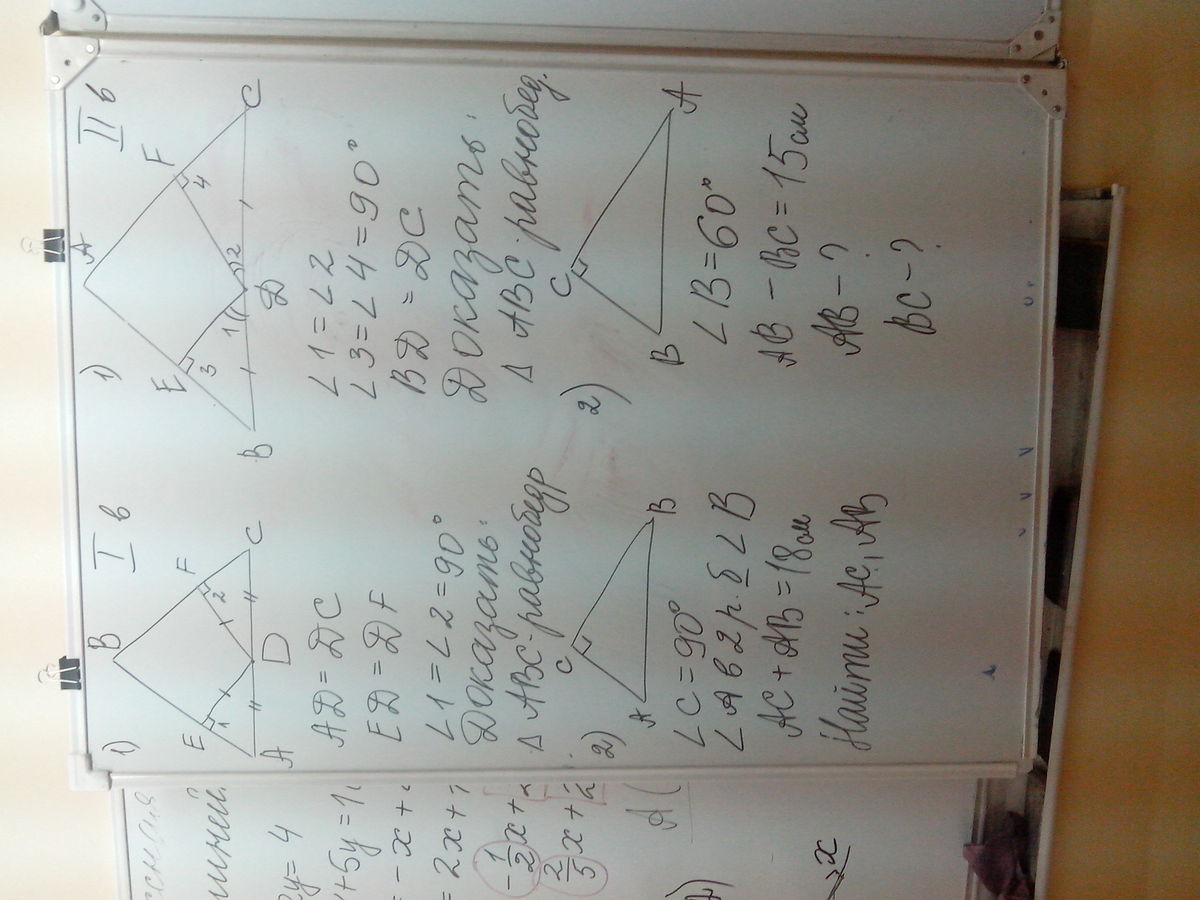 I в
1)
B
E
F
1
2
A
D
C
AD = DC
ED = DF
∠1 = ∠2 = 90°
Доказать:
Δ ABC - равнобедр
2)
C
A
B
∠C = 90°
∠A в 2 р. б ∠B
AC + AB = 18 см
Найти: AC, AB
II в
1)
A
E
F
3
4
1
2
B
D
C
∠1 = ∠2
∠3 = ∠4 = 90°
BD = DC
Доказать:
Δ ABC - равнобед.
2)
C
B
A
∠B = 60°
AB - BC = 15 см
AB - ?
BC - ?
y = 4
+5y = 1
= -x +
= 2x +
-1/2 x +
2/5 x +
A (
x